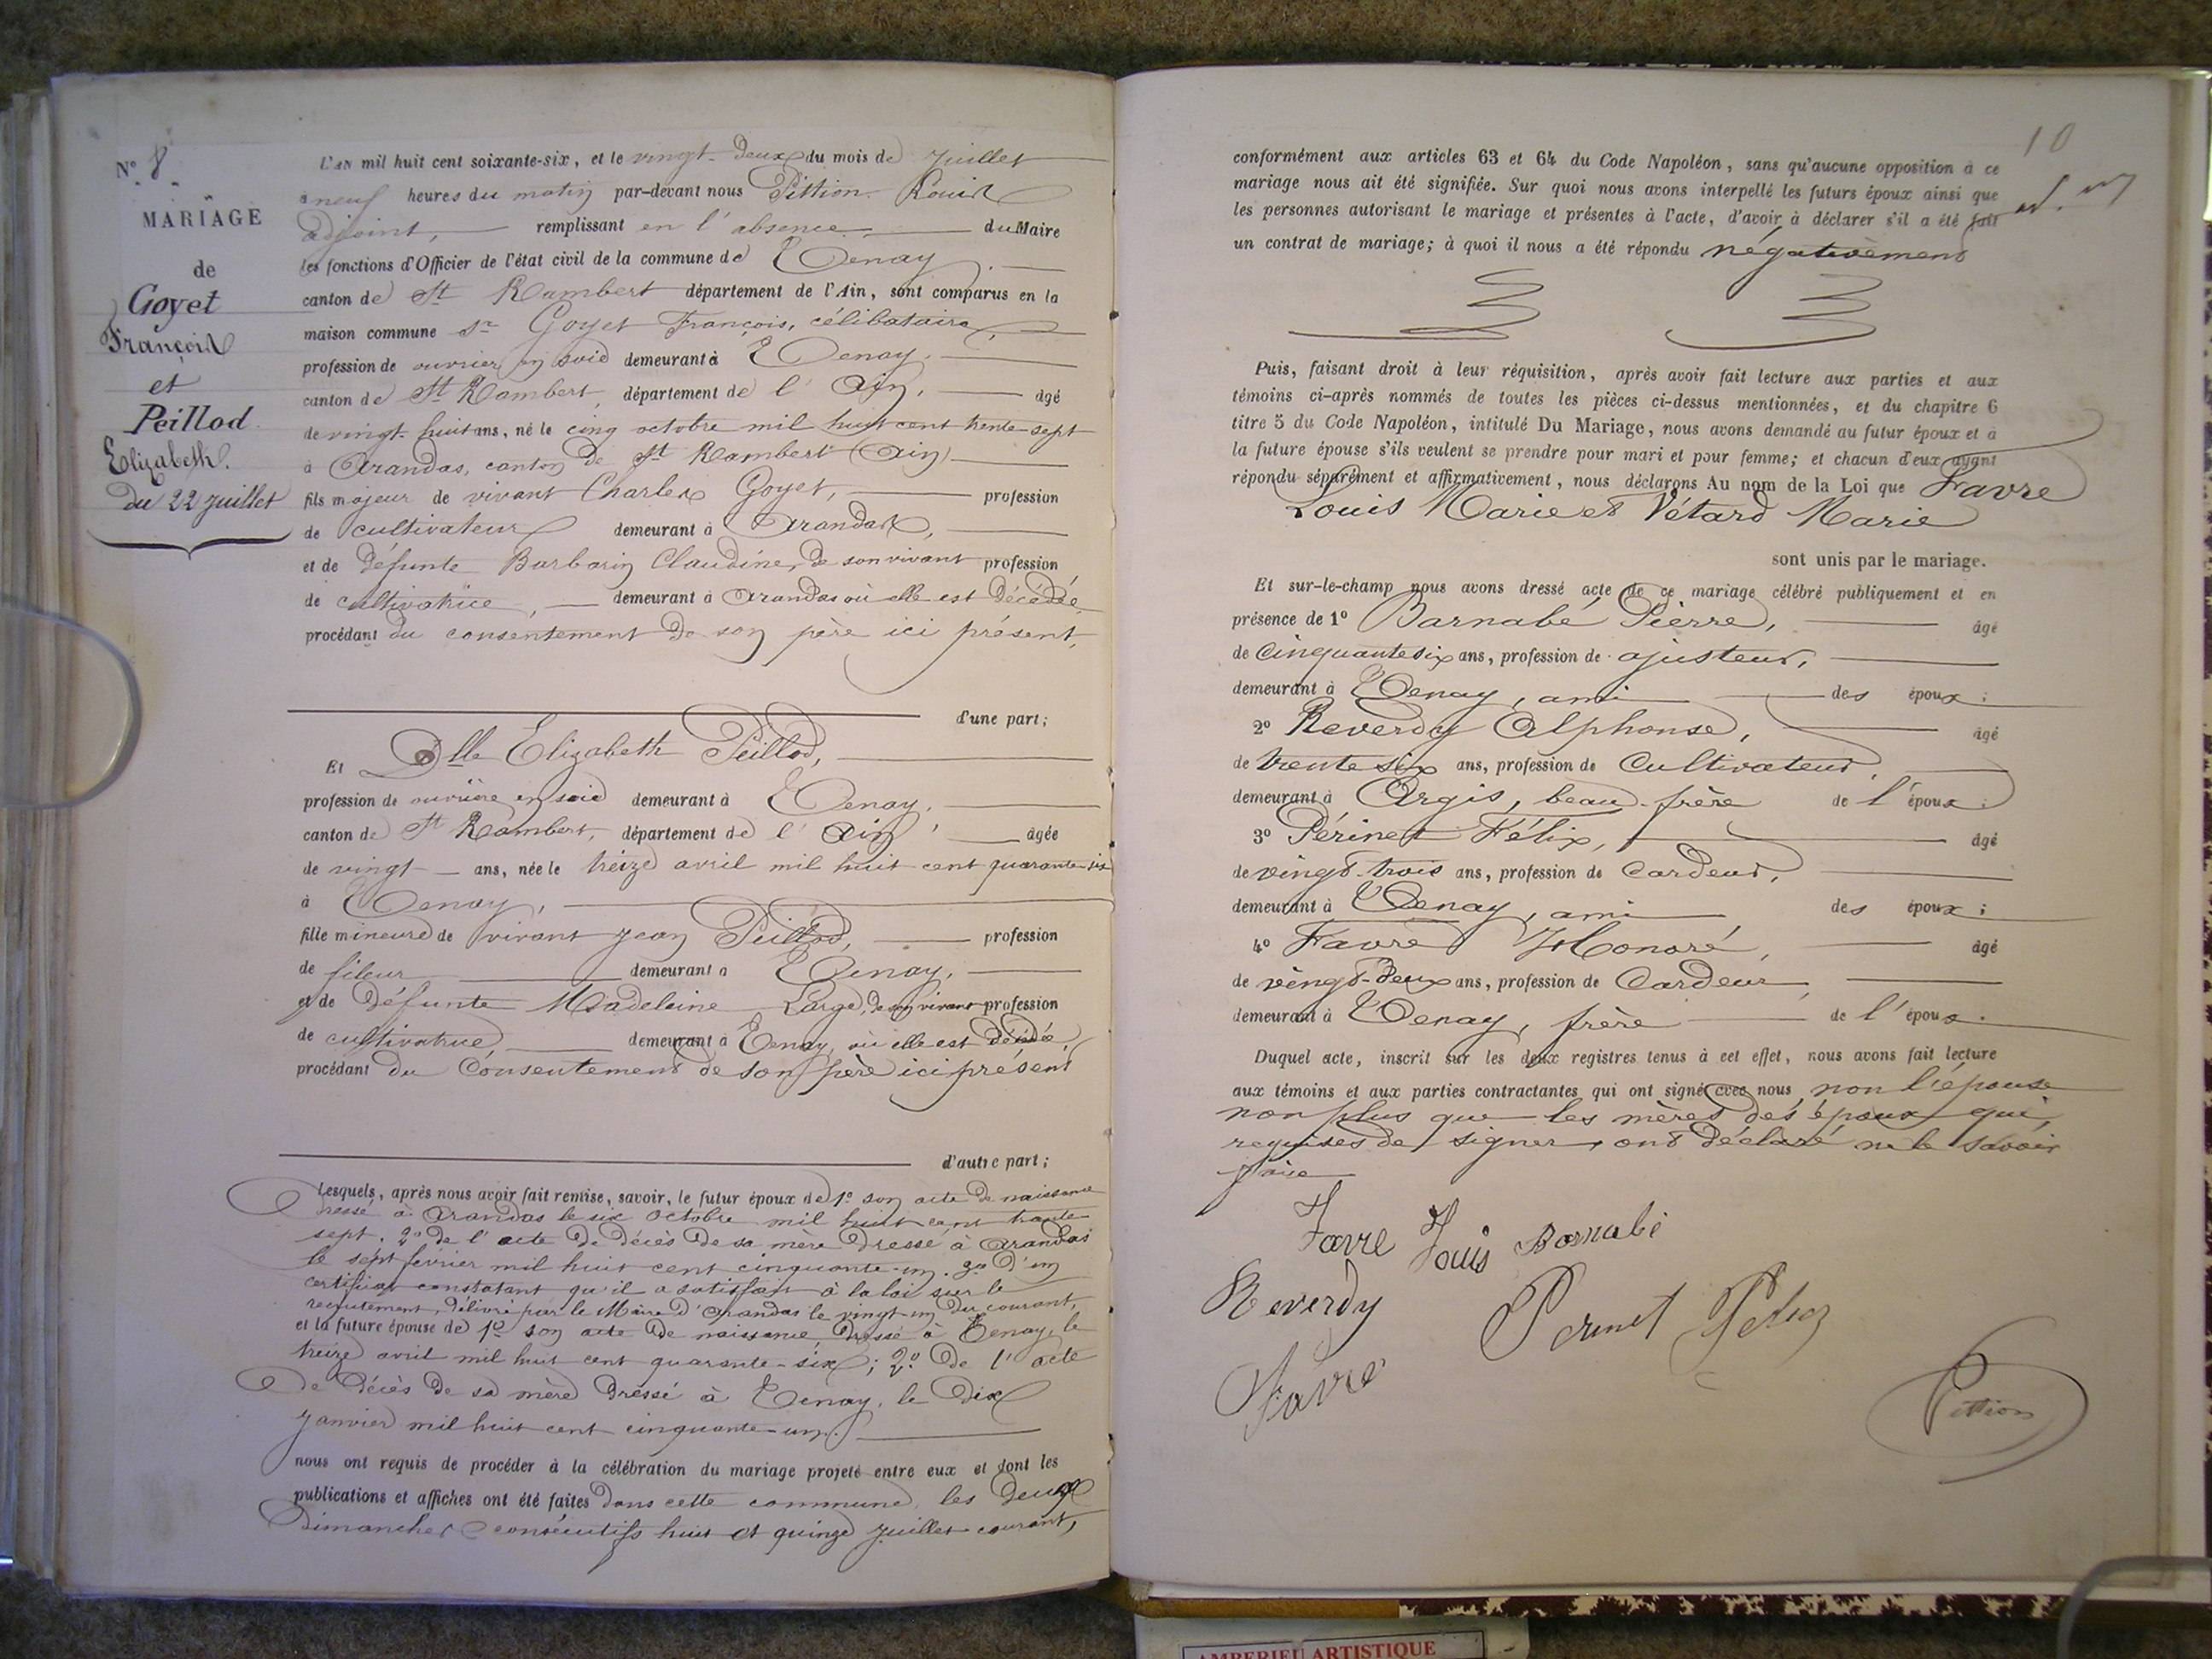 N° 8.
MARIAGE
de
Goyet
François
et
Peillod
Elizabeth.
du 22 juillet
L'AN mil huit cent soixante-six, et le vingt-deux du mois de juillet
à neuf heures du matin par-devant nous Pittion Louis
adjoint, remplissant en l'absence du Maire
les fonctions d'Officier de l'état civil de la commune de Tenay
canton de St Rambert département de l'Ain, sont comparus en la
maison commune Sr Goyet François, célibataire,
profession de ouvrier en soie demeurant à Tenay,
canton de St Rambert, département de l'Ain, âgé
de vingt-huit ans, né le cinq octobre mil huit cent trente-sept
à Arandas, canton de St Rambert (Ain)
fils majeur de vivant Charles Goyet, profession
de cultivateur demeurant à Arandas,
et de défunte Barbarin Claudine, de son vivant profession
de cultivatrice, demeurant à Arandas où elle est décédée,
procédant du consentement de son père ici présent,
d'une part;
Et Dlle Elizabeth Peillod,
profession de ouvrière en soie demeurant à Tenay,
canton de St Rambert, département de l'Ain, âgée
de vingt ans, née le treize avril mil huit cent quarante-six
à Tenay,
fille mineure de vivant Jean Peillod, profession
de fileur demeurant à Tenay,
et de défunte Madeleine Large, de son vivant profession
de cultivatrice, demeurant à Tenay, où elle est décédée
procédant du Consentement de son père ici présent
d'autre part;
Lesquels, après nous avoir fait remise, savoir, le futur époux de 1° son acte de naissance
dressé à Arandas le six octobre mil huit cent trente
sept. 2° de l'acte de décès de sa mère dressé à Arandas
le sept février mil huit cent cinquante-un. 3° d'un
certificat constatant qu'il a satisfait à la loi sur le
recrutement, délivré par le Maire d'Arandas le vingt-un du courant,
et la future épouse de 1° son acte de naissance, dressé à Tenay, le
treize avril mil huit cent quarante-six; 2° de l'acte
de décès de sa mère dressé à Tenay, le dix
janvier mil huit cent cinquante-un.
nous ont requis de procéder à la célébration du mariage projeté entre eux et dont les
publications et affiches ont été faites dans cette commune, les deux
dimanches consécutifs huit et quinze juillet courant,
10
conformément aux articles 63 et 64 du Code Napoléon, sans qu'aucune opposition à ce
mariage nous ait été signifiée. Sur quoi nous avons interpellé les futurs époux ainsi que
les personnes autorisant le mariage et présentes à l'acte, d'avoir à déclarer s'il a été fait
un contrat de mariage; à quoi il nous a été répondu négativement
Puis, faisant droit à leur réquisition, après avoir fait lecture aux parties et aux
témoins ci-après nommés de toutes les pièces ci-dessus mentionnées, et du chapitre 6
titre 5 du Code Napoléon, intitulé Du Mariage, nous avons demandé au futur époux et à
la future épouse s'ils veulent se prendre pour mari et pour femme; et chacun d'eux ayant
répondu séparément et affirmativement, nous déclarons Au nom de la Loi que Favre
Louis Marie et Vétard Marie
sont unis par le mariage.
Et sur-le-champ nous avons dressé acte de ce mariage célébré publiquement et en
présence de 1° Barnabé Pierre, âgé
de Cinquante six ans, profession de ajusteur,
demeurant à Tenay, ami des époux;
2° Reverdy Alphonse, âgé
de trente six ans, profession de Cultivateur,
demeurant à Argis, beau-frère de l'époux;
3° Périnet Félix, âgé
de vingt-trois ans, profession de Cardeur,
demeurant à Tenay, ami des époux;
4° Favre Honoré, âgé
de vingt-deux ans, profession de Cardeur,
demeurant à Tenay, frère de l'époux.
Duquel acte, inscrit sur les deux registres tenus à cet effet, nous avons fait lecture
aux témoins et aux parties contractantes qui ont signé avec nous, non l'épouse
non plus que les mères des époux qui,
requises de signer, ont déclaré ne le savoir
faire
Favre Louis Barnabé
Reverdy Perinet Felix
Favre
Pittion
AMBERIEU ARTISTIQUE